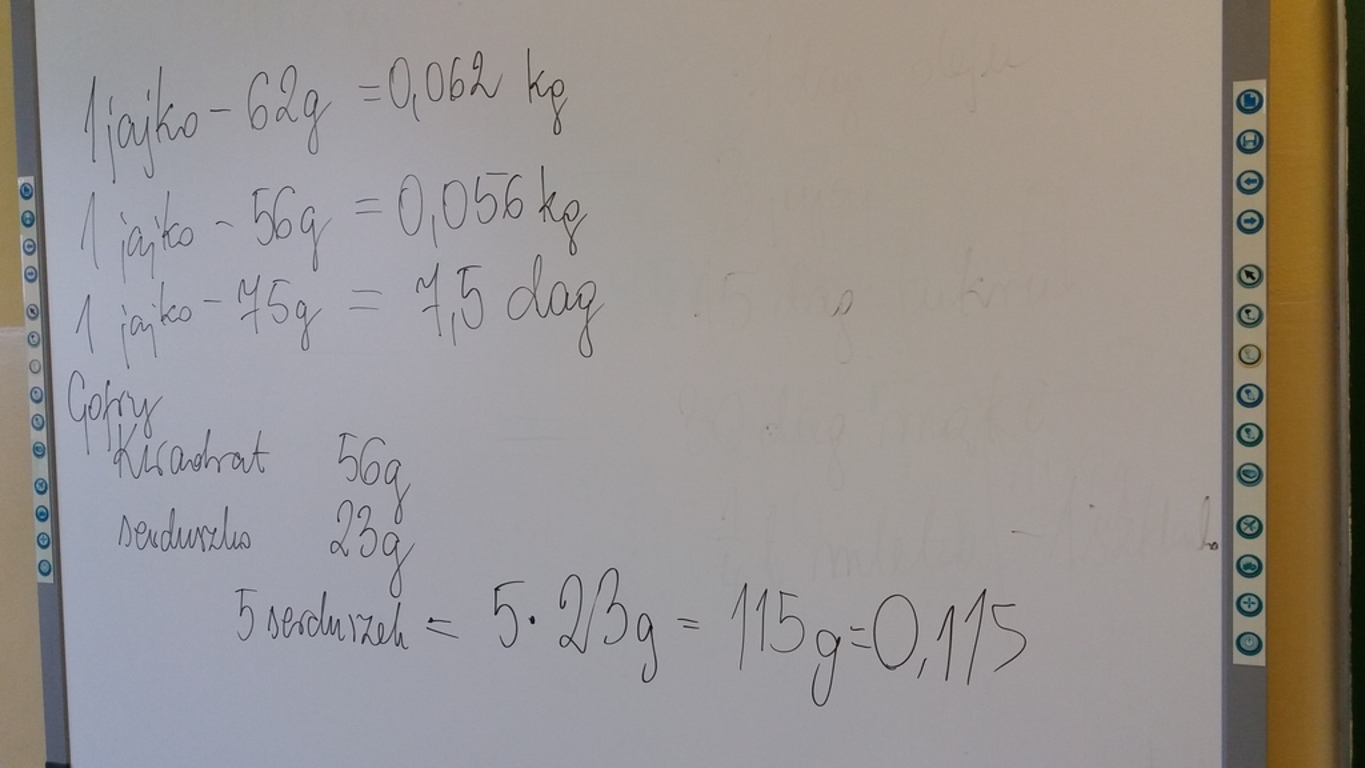 1 jajko - 62g = 0,062 kg
1 jajko - 56g = 0,056 kg
1 jajko - 75g = 7,5 dag
Gofry
Kwadrat 56g
serduszko 23g
5 serduszek = 5 · 23g = 115g = 0,115